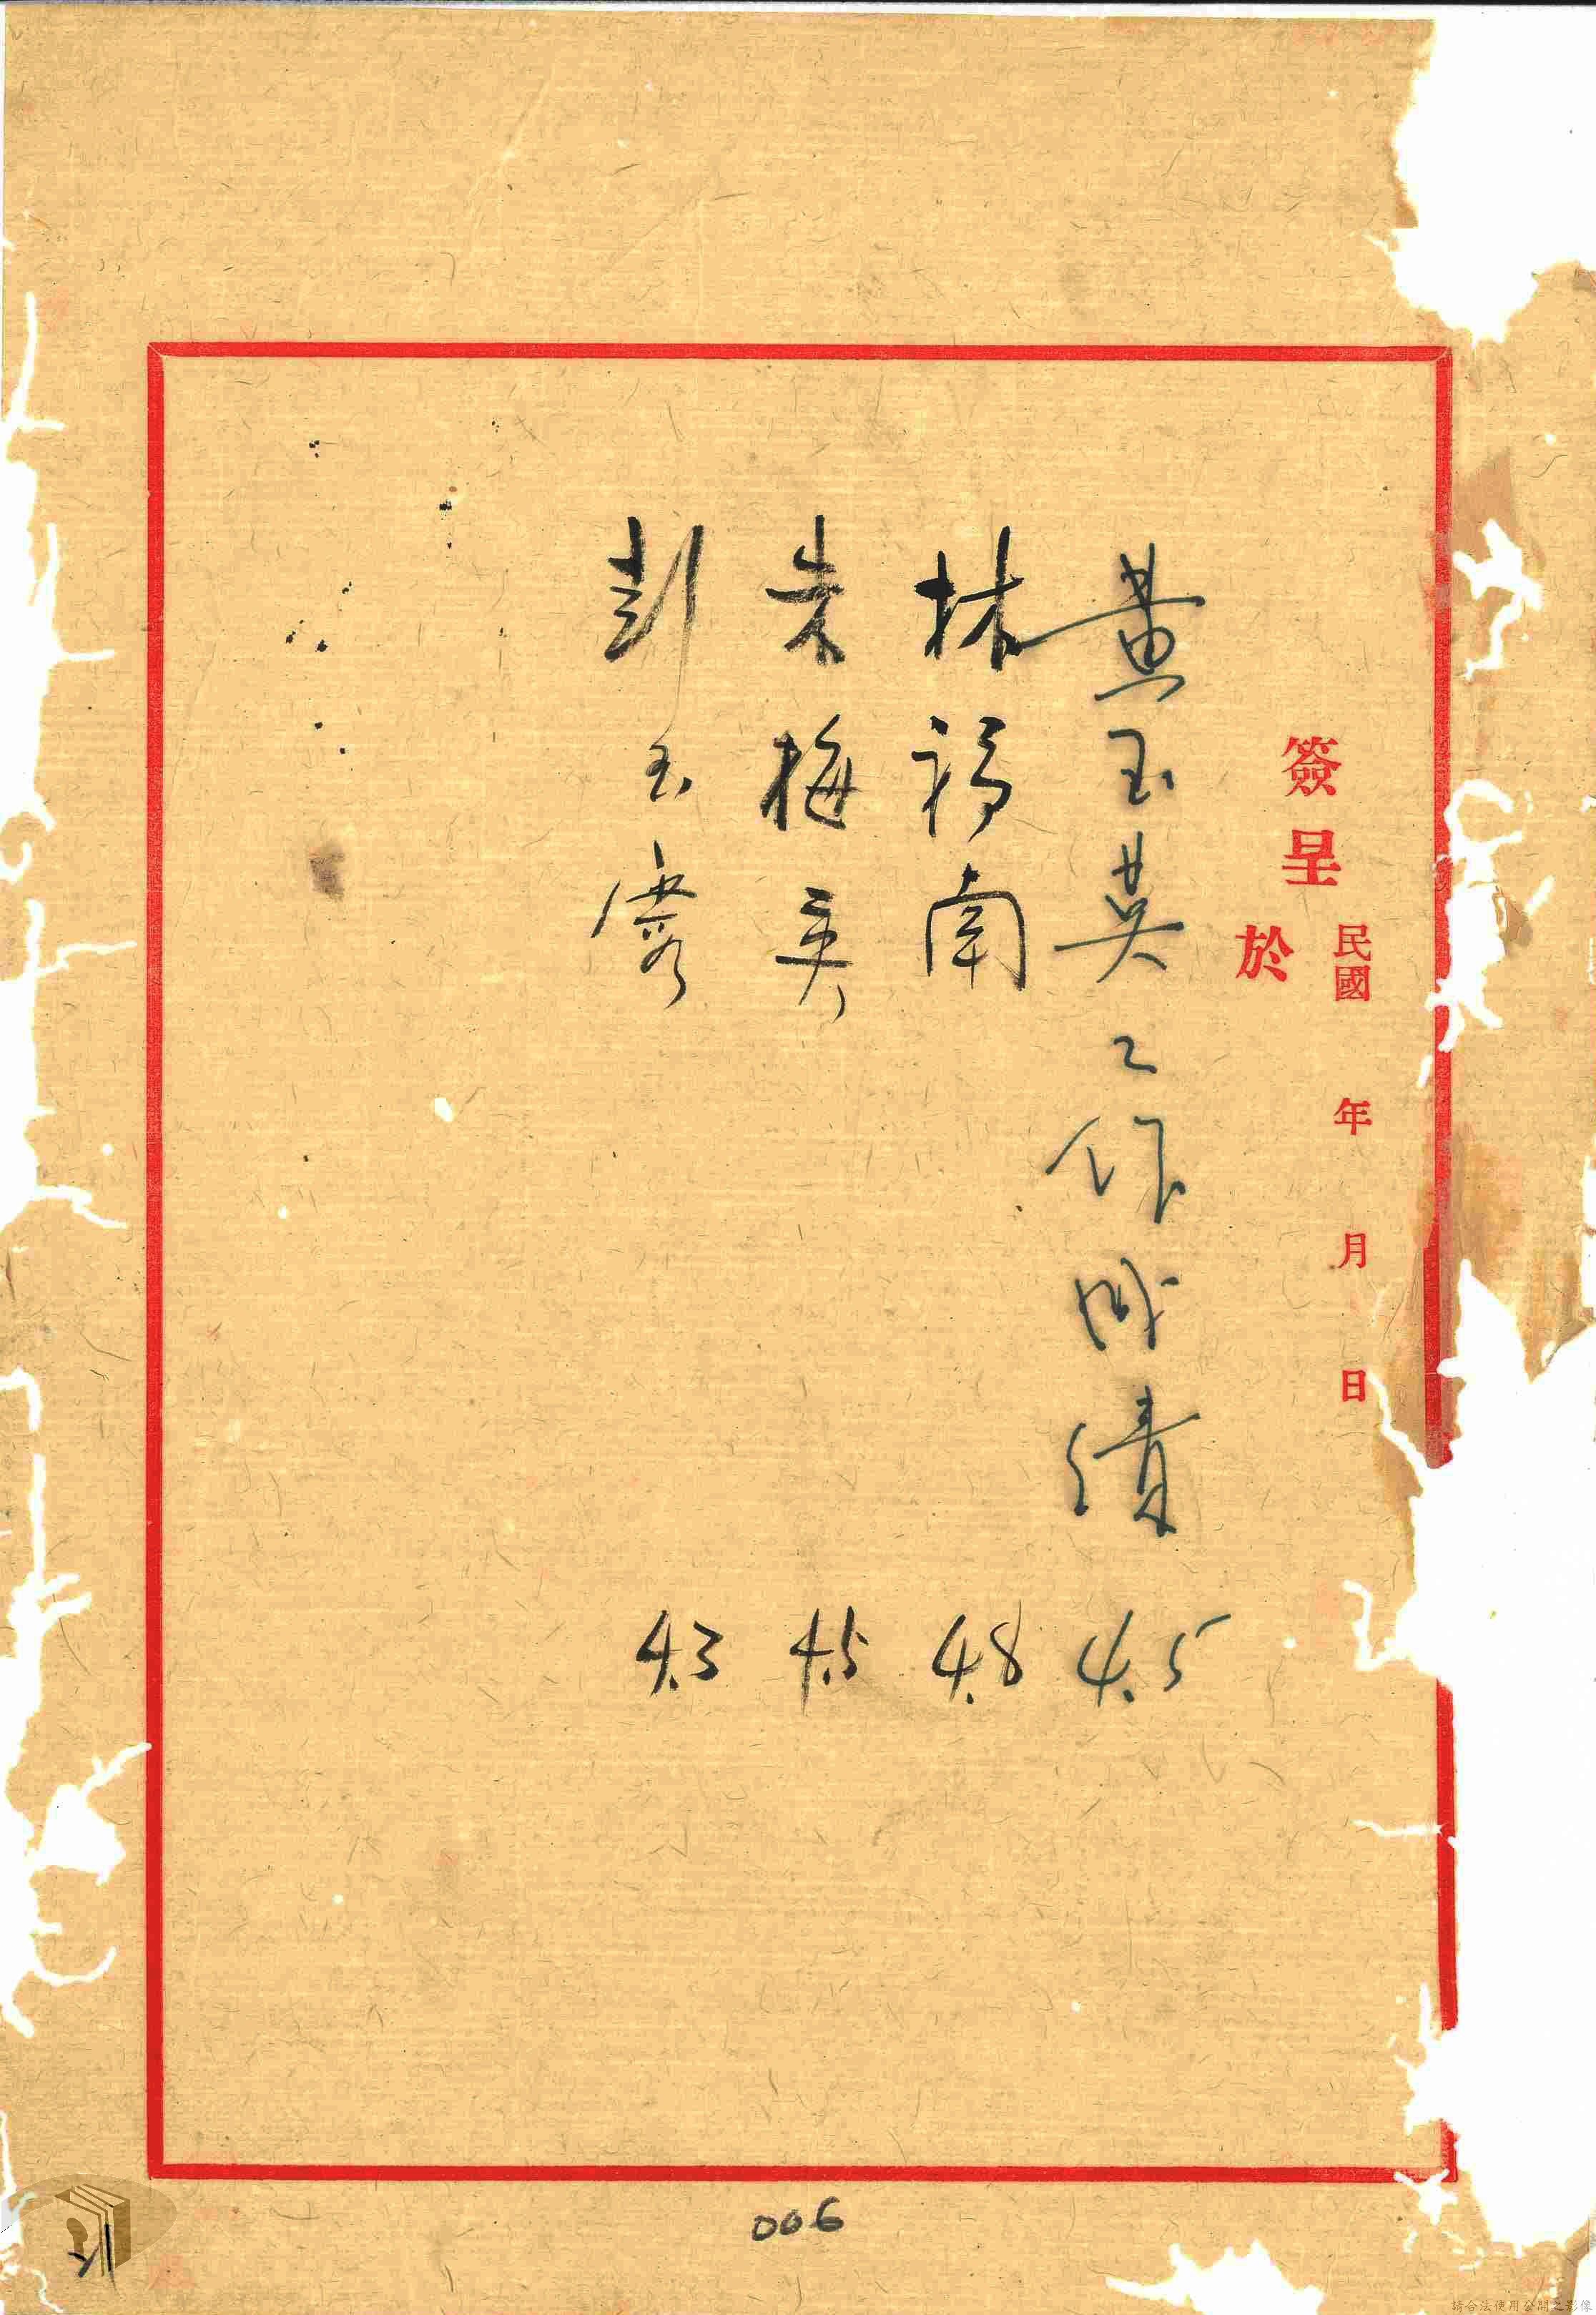 簽呈
民國 年 月 日
於
黃玉英工作成績 4.5
林福南 4.8
朱梅英 4.5
彭玉霞 4.3
006
請合法使用公開之影像